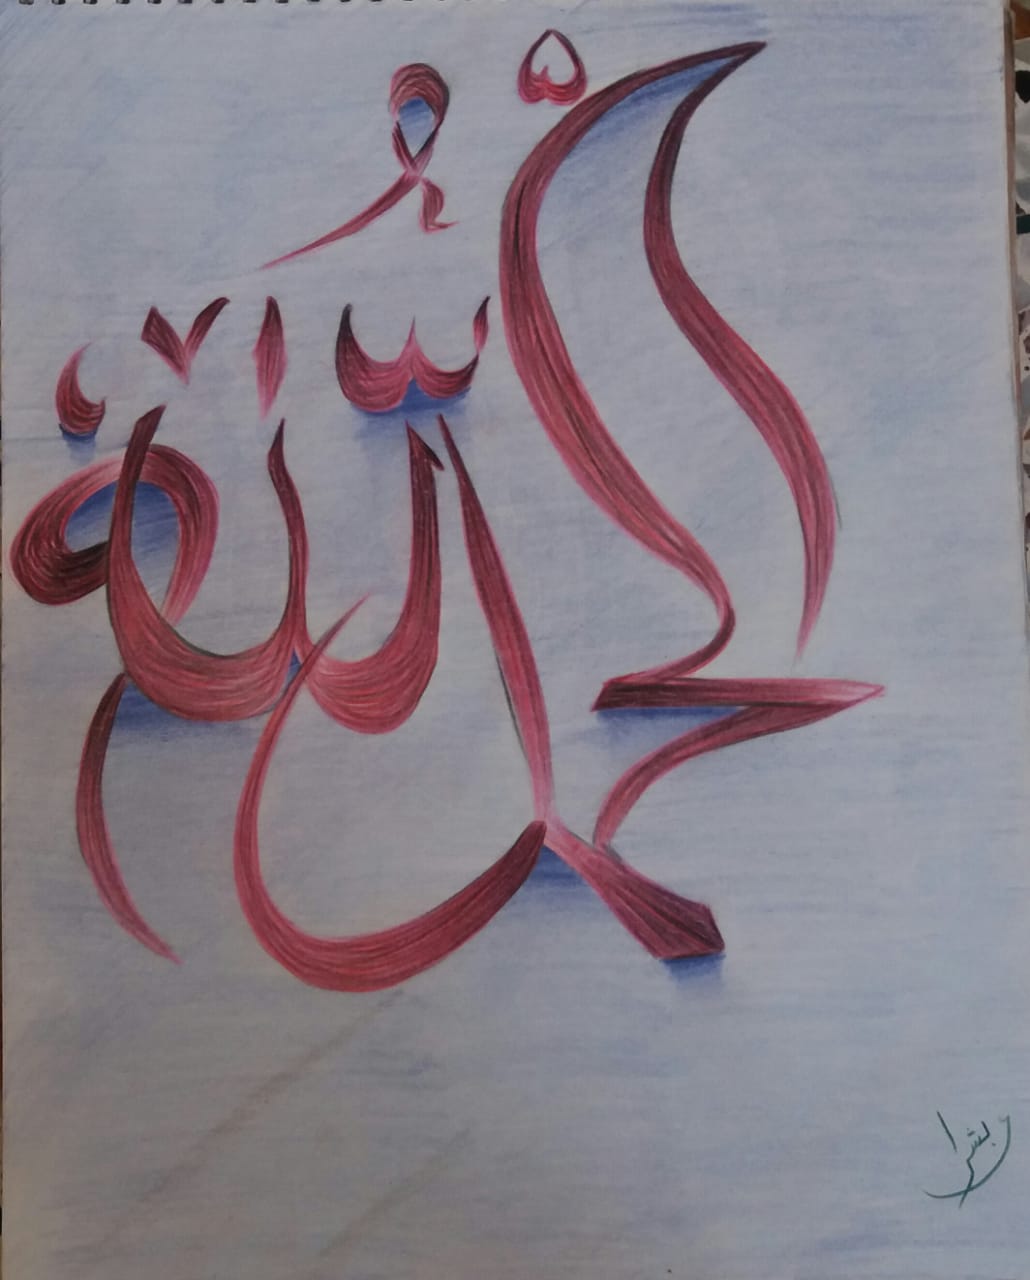 الحمد لله
بشرا